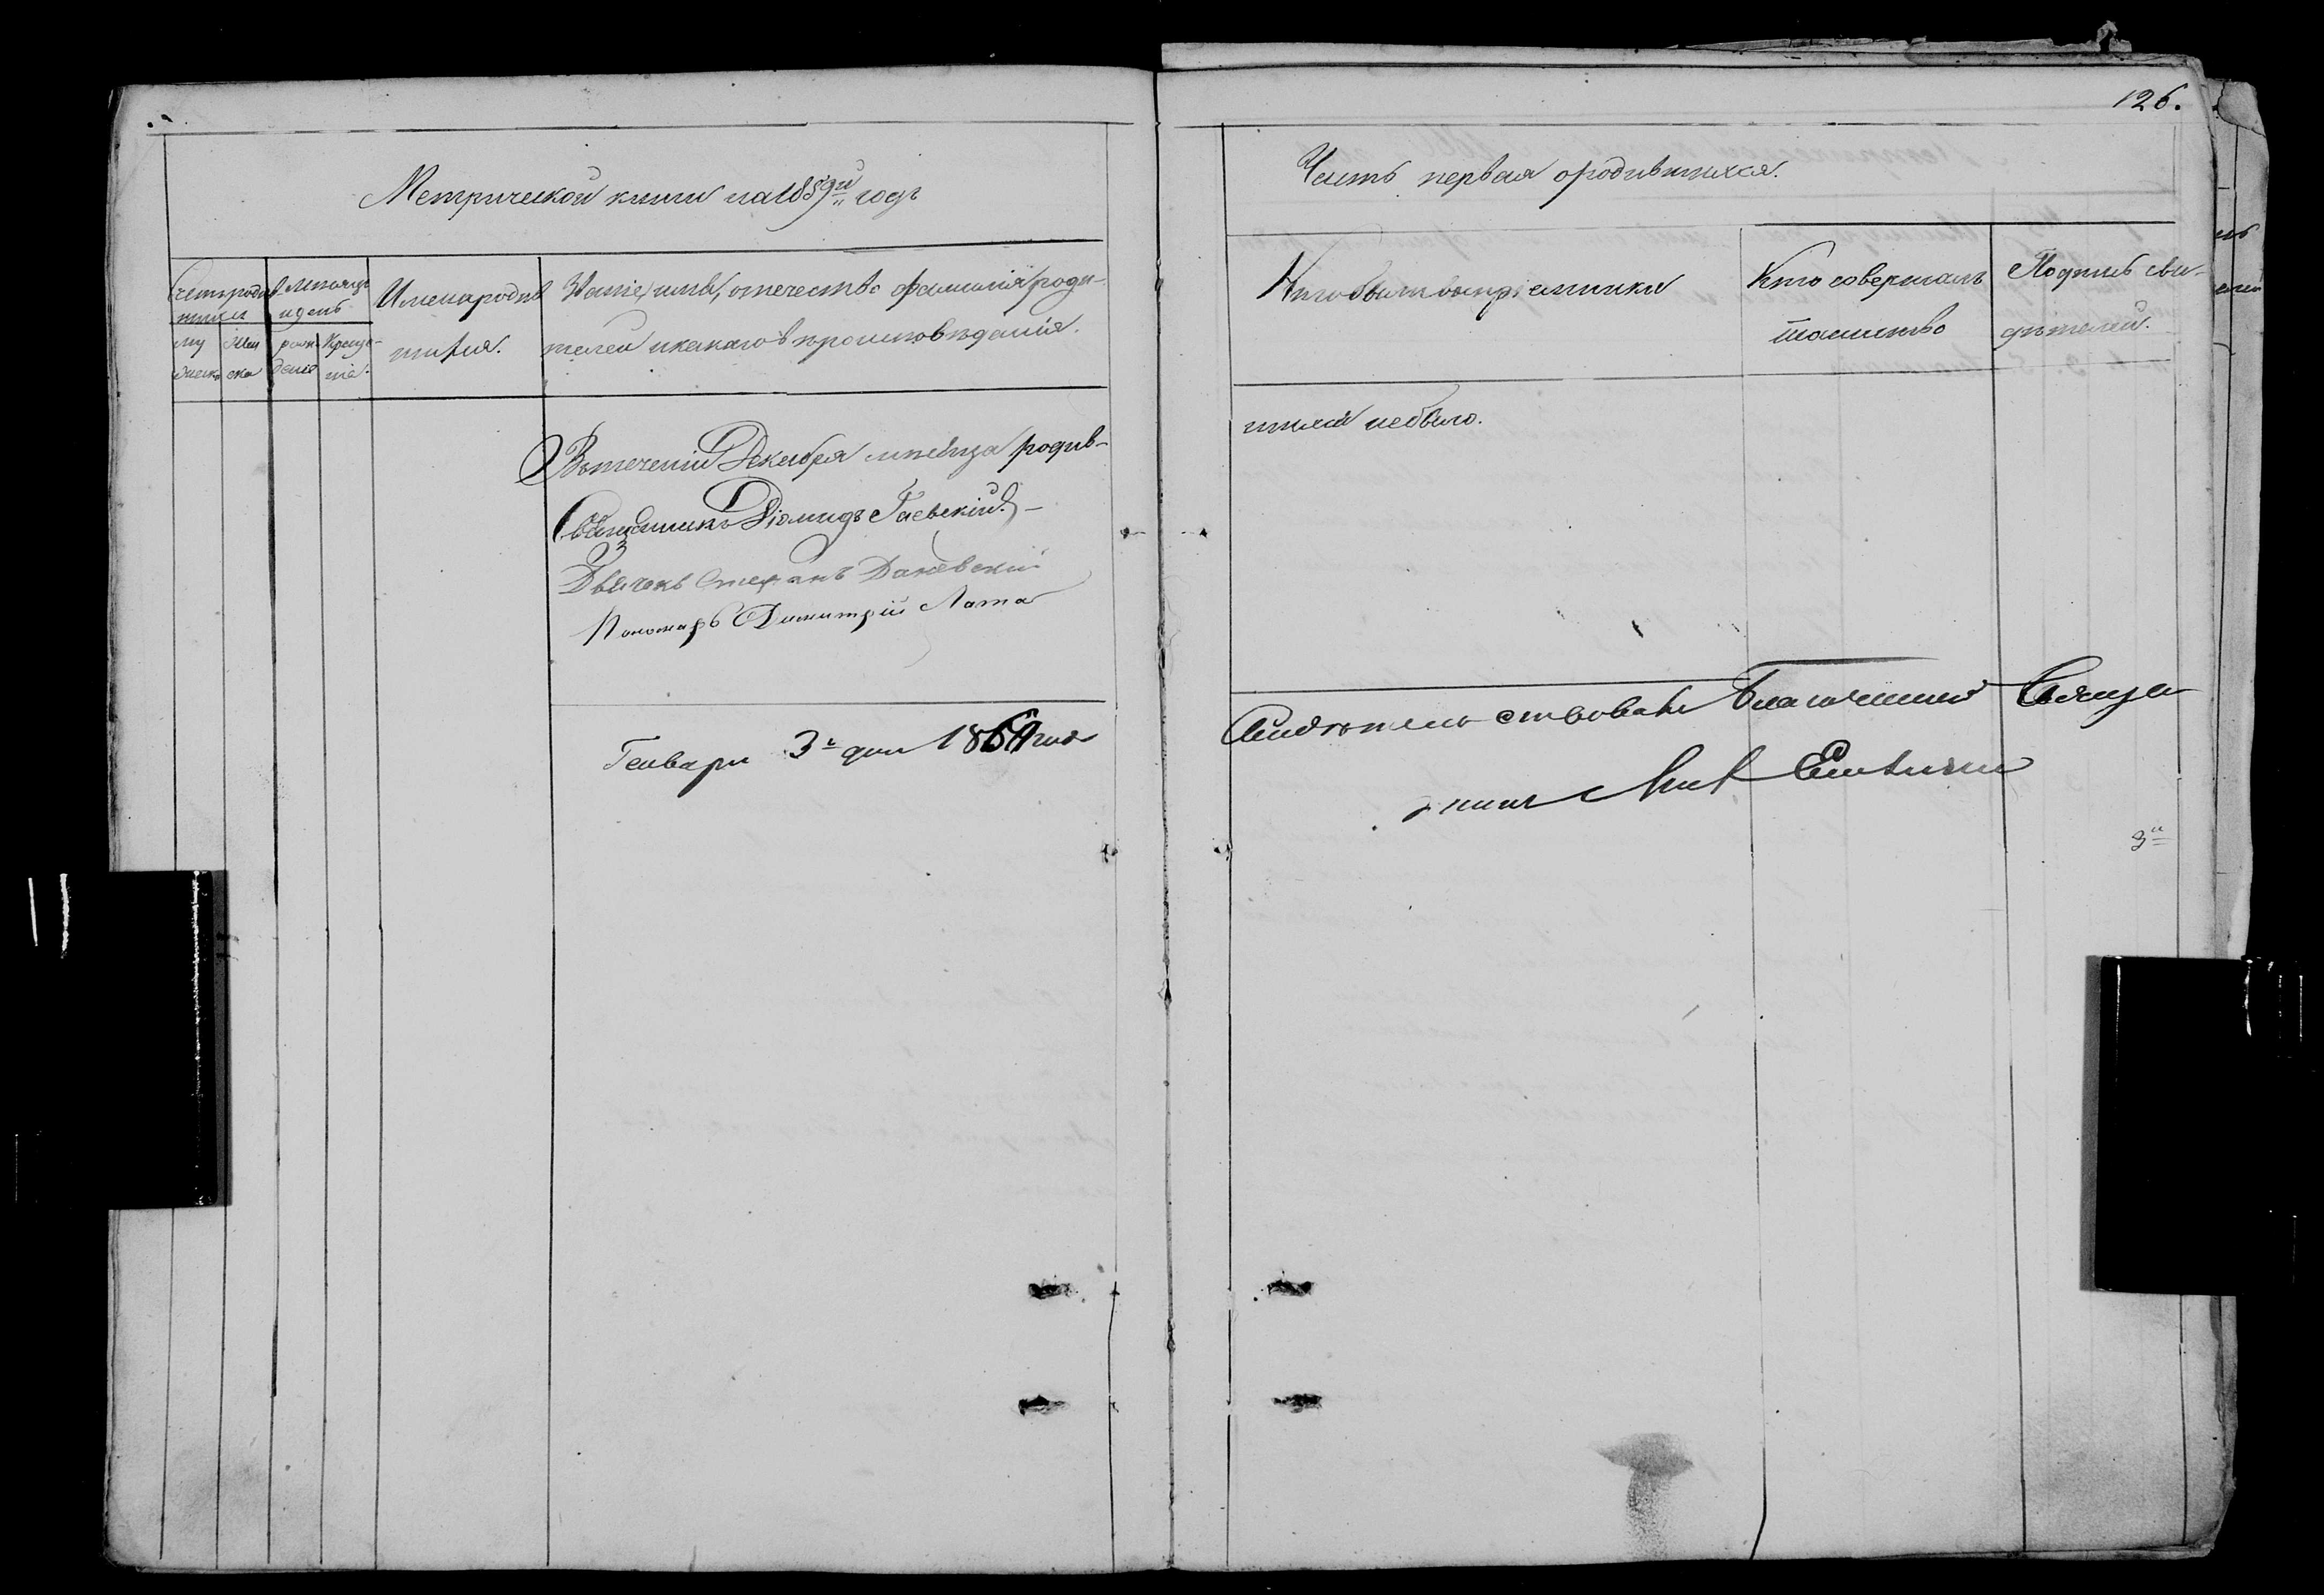 126.
Метрической книги на 1859й годъ
Часть первая о родившихся.
Счетъ родив
шихся
Мѣсяцъ
и день
му
жеска
жен
ска
рож
денія
креще-
нія.
Имена родив
шихся.
Званіе, имя, отечество фамилія роди-
телей и какаго вѣроисповѣданія.
Кто были воспріемники
Кто совершалъ
таинство
Подпись сви-
дѣтелей.
Втеченіи Декабря мѣсяца родив-
шихся небыло.
Священникъ Діомидъ Гаевскій
Дьячекъ Стефанъ Даневскій
Пономарь Димитрій Лата
Генваря 3 дня 1860 года
Свидѣтельствовалъ Благочинный Свяще
нникъ
3й